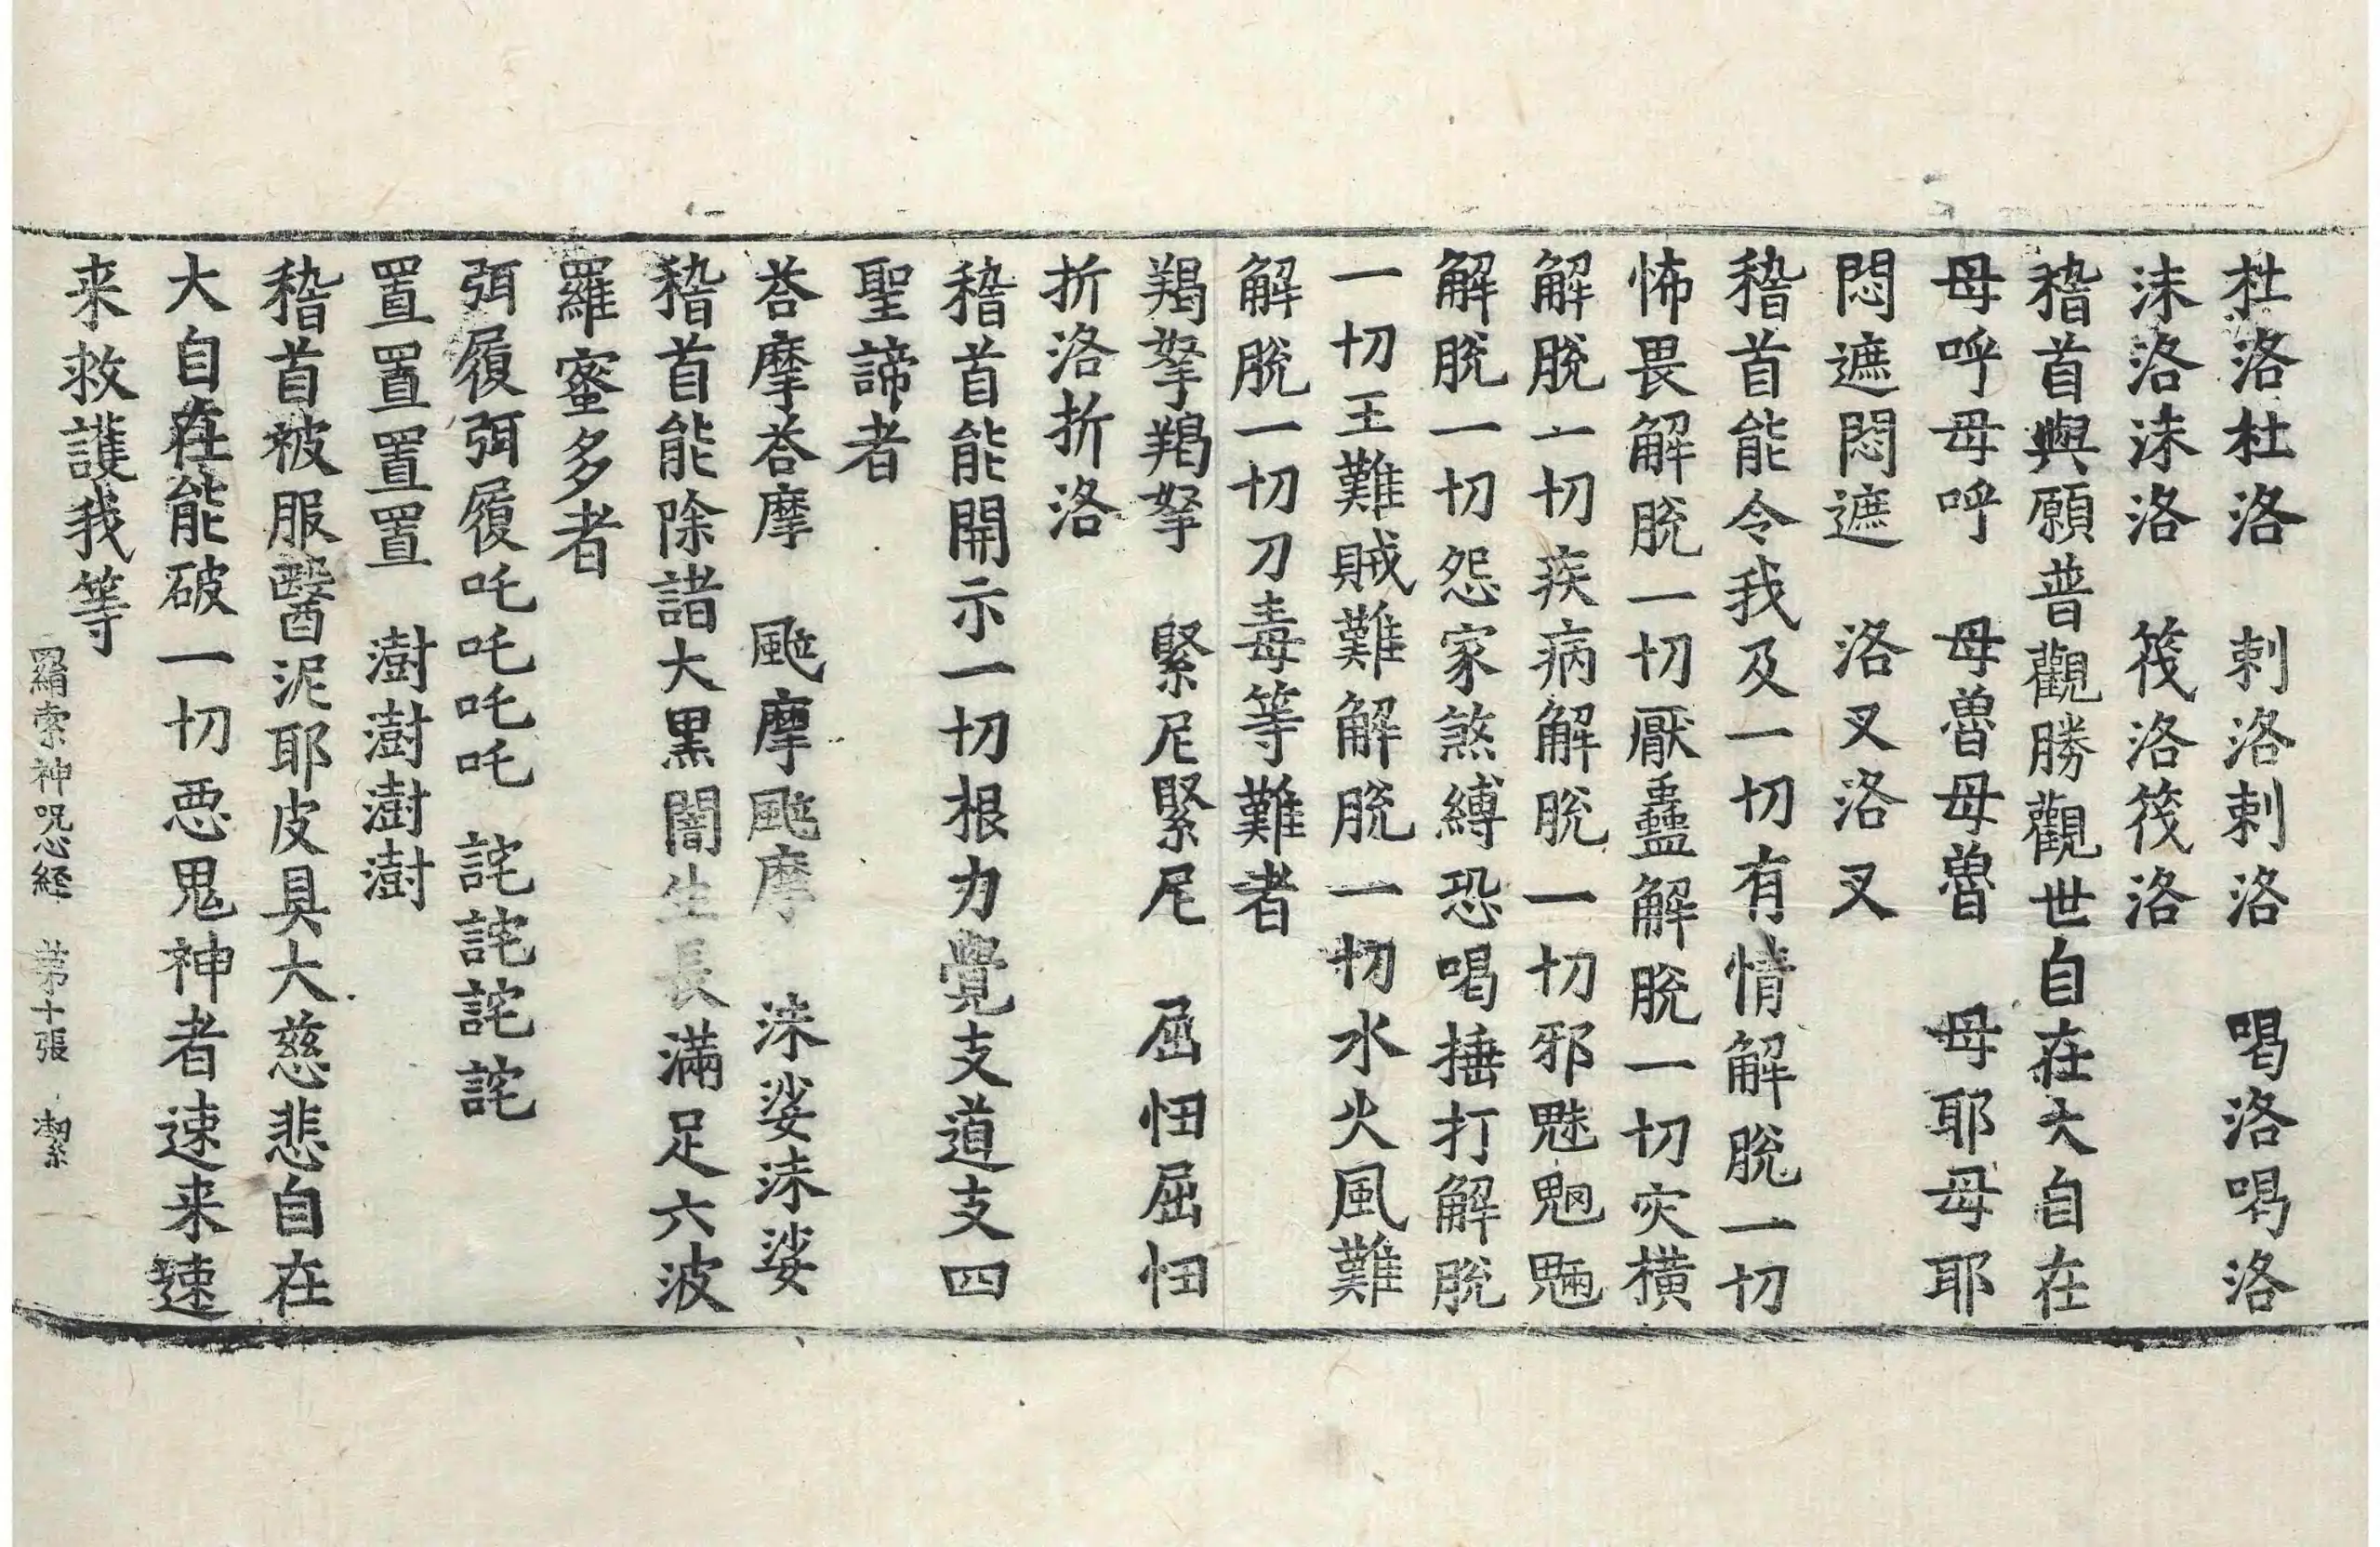 杜洛杜洛　剌洛剌洛　喝洛喝洛
沬洛沬洛　筏洛筏洛
稽首與願普觀勝觀世自在大自在
母呼母呼　母魯母魯　母耶母耶
悶遮悶遮　洛叉洛叉
稽首能令我及一切有情解脫一切
怖畏解脫一切厭蠱解脫一切灾橫
解脫一切疾病解脫一切邪魅魍魎
解脫一切怨家煞縛恐喝捶打解脫
一切王難賊難解脫一切水火風難
解脫一切刀毒等難者
羯拏羯拏　緊尼緊尼　屈㤧屈㤧
折洛折洛
稽首能開示一切根力覺支道支四
聖諦者
荅摩荅摩　颭摩颭摩　沬娑沬娑
稽首能除諸大黑闇生長滿足六波
羅蜜多者
弭履弭履吒吒吒吒　詫詫詫詫
置置置置　澍澍澍澍
稽首被服醫泥耶皮具大慈悲自在
大自在能破一切惡鬼神者速来速
来救護我等
羂索神呪心経　苐十張　潔